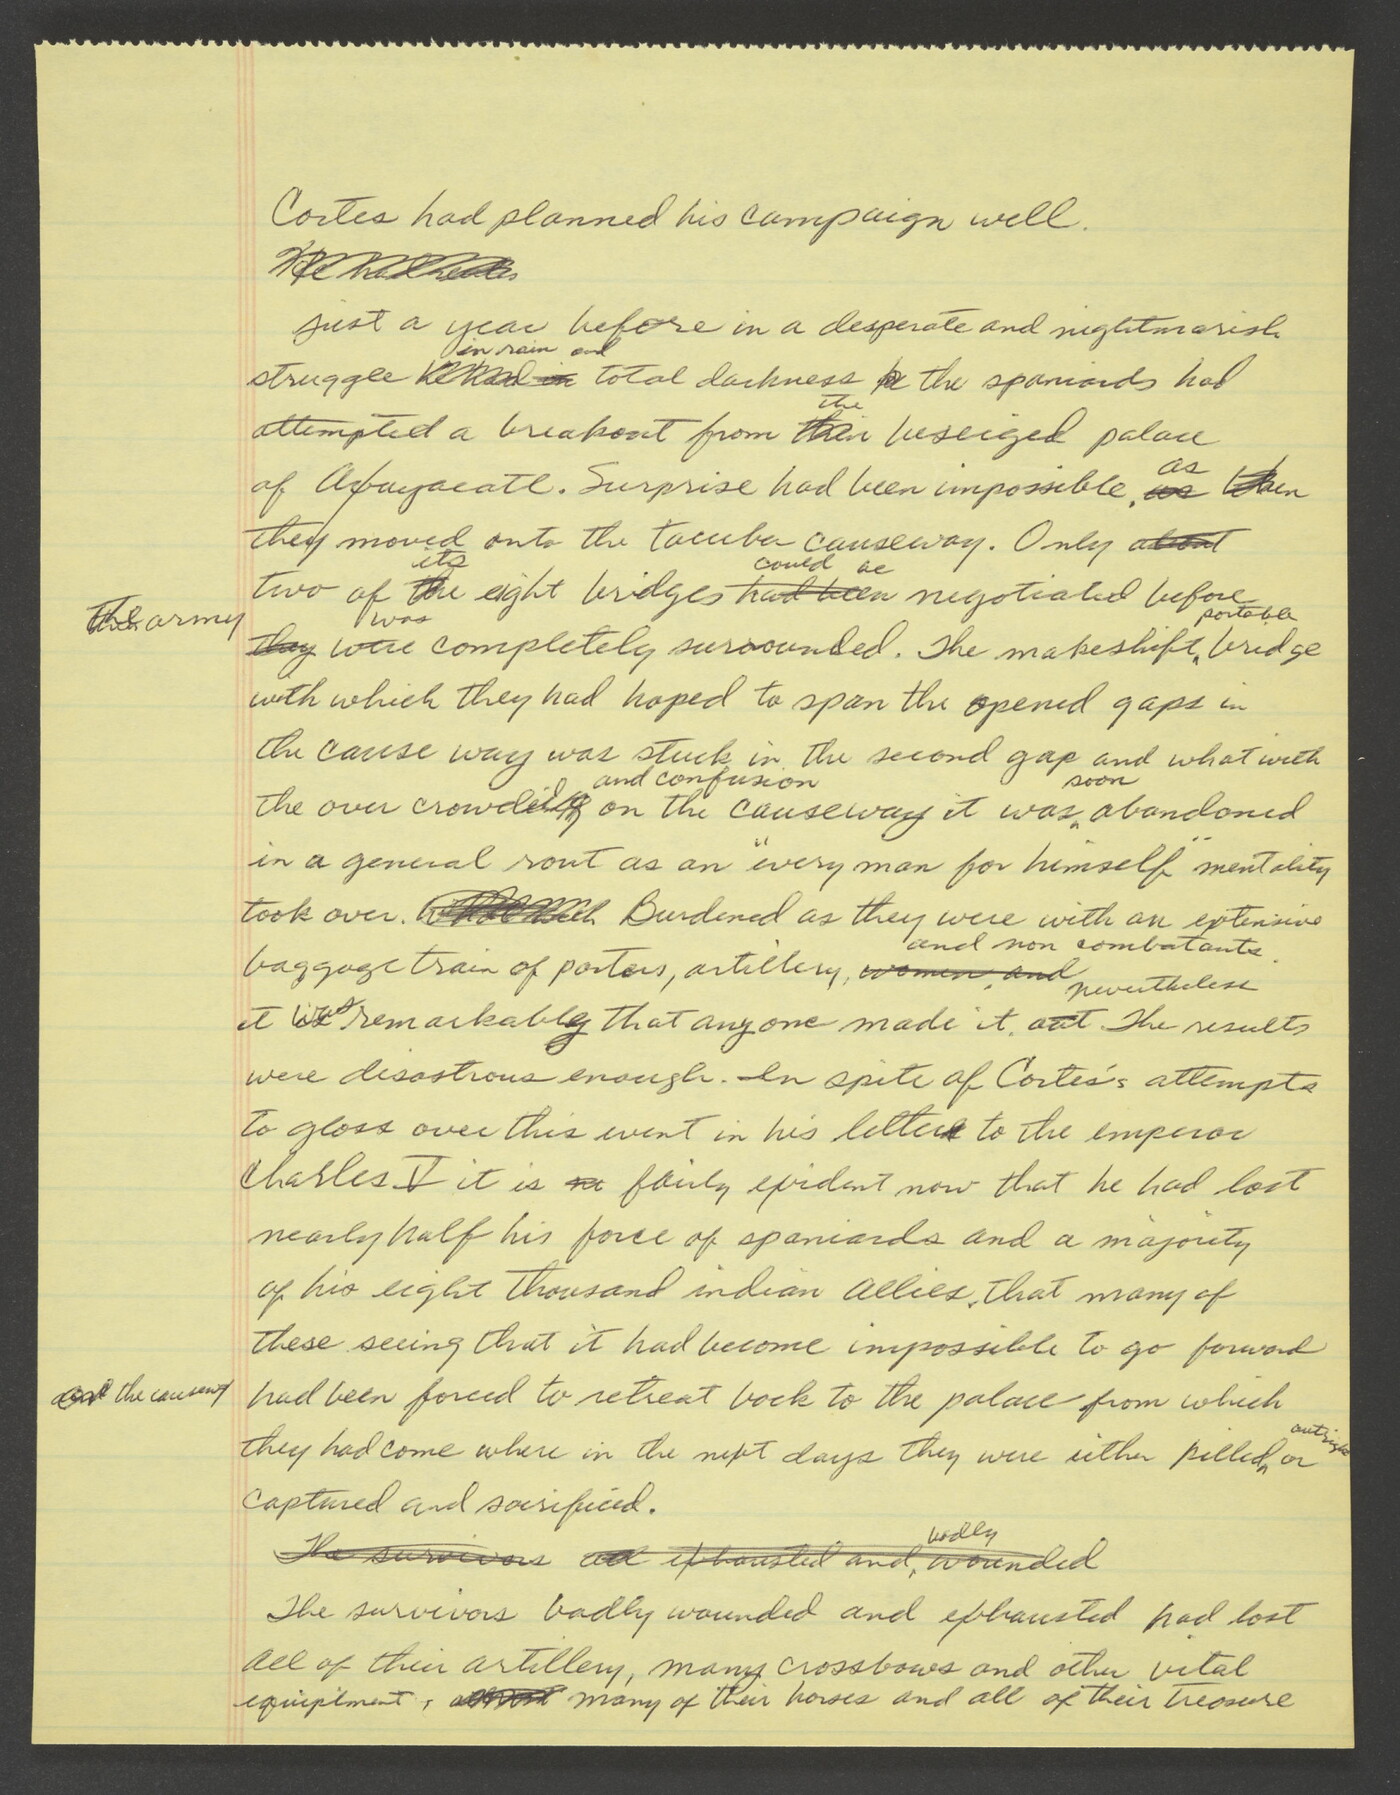 Cortes had planned his campaign well.
just a year before in a desperate and nightmarish
in rain and
struggle total darkness the spaniards had
the
attempted a breakout from beseiged palace
of Axayacatl. Surprise had been impossible, as
they moved onto the tacuba causeway. Only about
its could be
two of the eight bridges had been negotiated before
The army was portable
they were completely surrounded. The makeshift bridge
with which they had hoped to span the opened gaps in
the cause way was stuck in the second gap and what with
and confusion soon
the over crowding on the causeway it was abandoned
in a general rout as an "every man for himself" mentality
took over. Burdened as they were with an extensive
and non combatants.
baggage train of porters, artillery, women, and
nevertheless
it was remarkable that anyone made it out. The results
were disastrous enough. In spite of Cortes's attempts
to gloss over this event in his letter to the emperor
Charles V it is fairly evident now that he had lost
nearly half his force of spaniards and a majority
of his eight thousand indian allies, that many of
these seeing that it had become impossible to go forward
and the causeway
had been forced to retreat back to the palace from which
they had come where in the next days they were either killed outright or
captured and sacrificed.
badly
The survivors all exhausted and wounded
The survivors badly wounded and exhausted had lost
all of their artillery, many crossbows and other vital
equiptment, almost many of their horses and all of their treasure